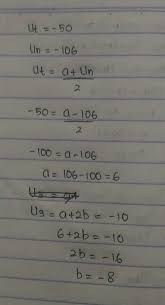 Ut = -50
Un = -106
Ut = a + Un
2
-50 = a - 106
2
-100 = a - 106
a = 106 - 100 = 6
U3 = a + 2b = -10
6 + 2b = -10
2b = -16
b = -8